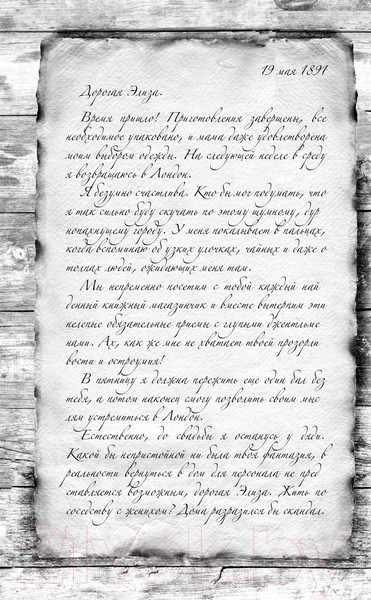 19 мая 1891
Дорогая Элиза.
Время пришло! Приготовления завершены, все
необходимое упаковано, и мама даже удовлетворена
моим выбором одежды. На следующей неделе в среду
я возвращаюсь в Лондон.
Я безумно счастлива. Кто бы мог подумать, что
я так сильно буду скучать по этому шумному, дур
нопахнущему городу. У меня покалывает в пальцах,
когда вспоминаю об узких улочках, чайных и даже о
толпах людей, ожидающих меня там.
Мы непременно посетим с тобой каждый най
денный книжный магазинчик и вместе вытерпим эти
нелепые обязательные приемы с глупыми джентльме
нами. Ах, как же мне не хватает твоей прозорли
вости и остроумия!
В пятницу я должна пережить еще один бал без
тебя, а потом наконец смогу позволить своим мыс
лям устремиться в Лондон.
Естественно, до свадьбы я останусь у дяди.
Какой бы непристойной ни была твоя фантазия, в
реальности вернуться в дом для персонала не пред
ставляется возможным, дорогая Элиза. Жить по
соседству с женихом? Дома разразился бы скандал.